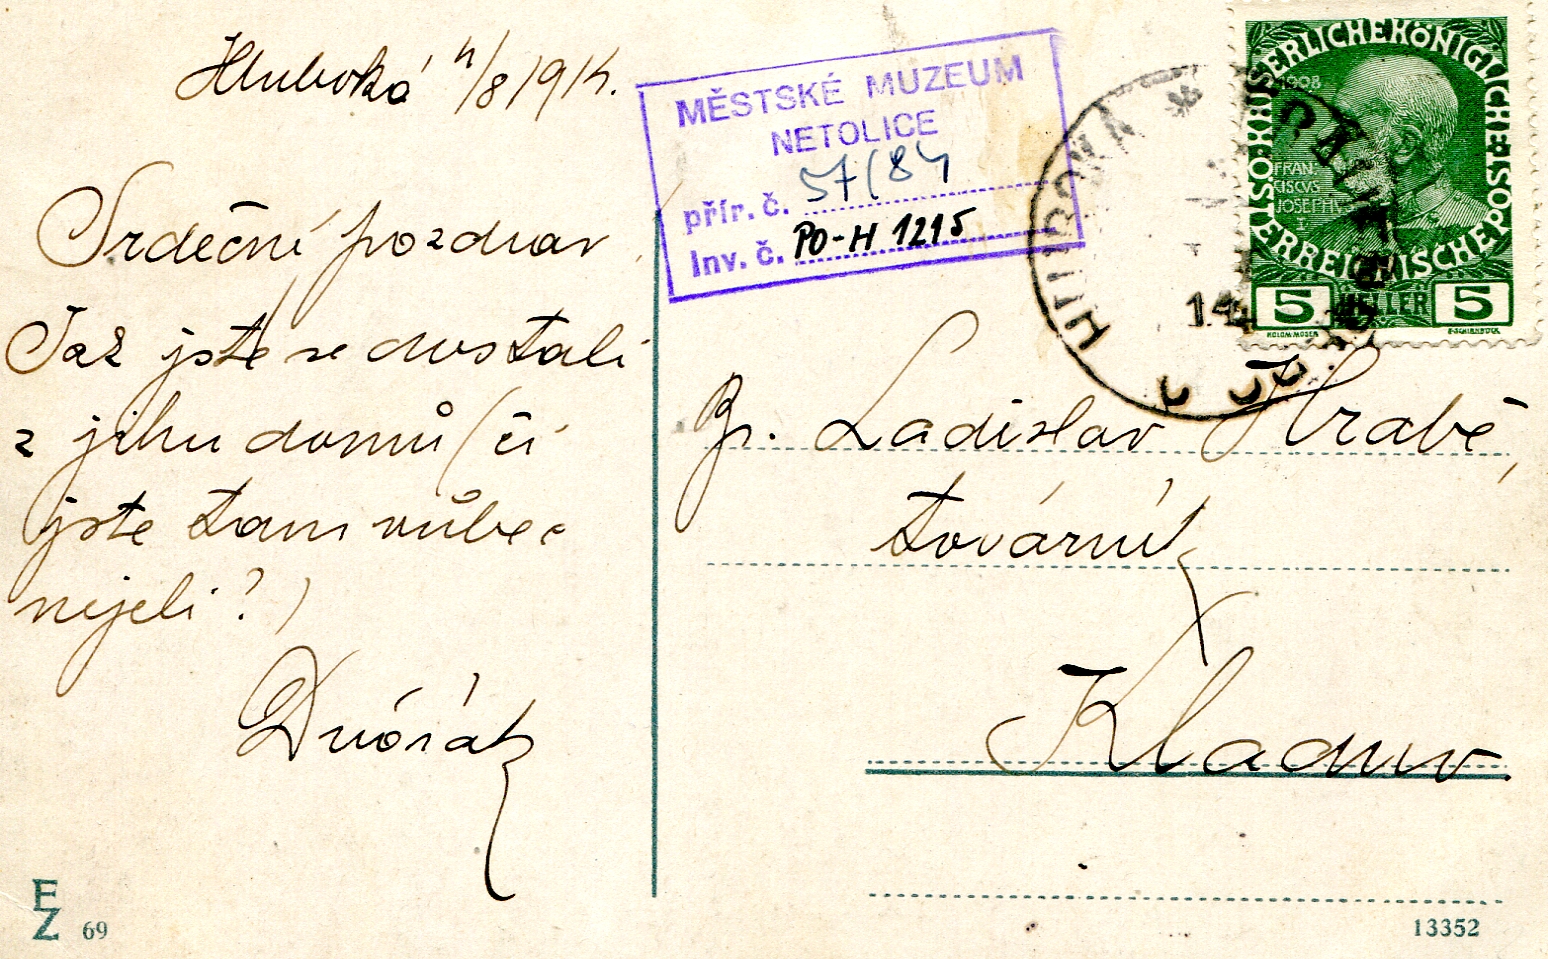 Hluboká 4/8 1914.
MĚSTSKÉ MUZEUM
NETOLICE
přír. č. 57/84
Inv. č. PO-H 1215
KAISERLICHE KÖNIGLICHE ÖSTERREICHISCHE POST
1908
FRAN
CISCVS
JOSEPHVS I
5 HELLER 5
KOLOM.MOSER F.SCHIRNBÖCK
HLUBOKÁ
14
Srdečný pozdrav.
Též jste se dostali
z jihu domů (či
jste tam vůbec
nejeli?)
Dvořák
Pr. Ladislav Hrabě,
továrník
Kladno.
E
Z 69
13352